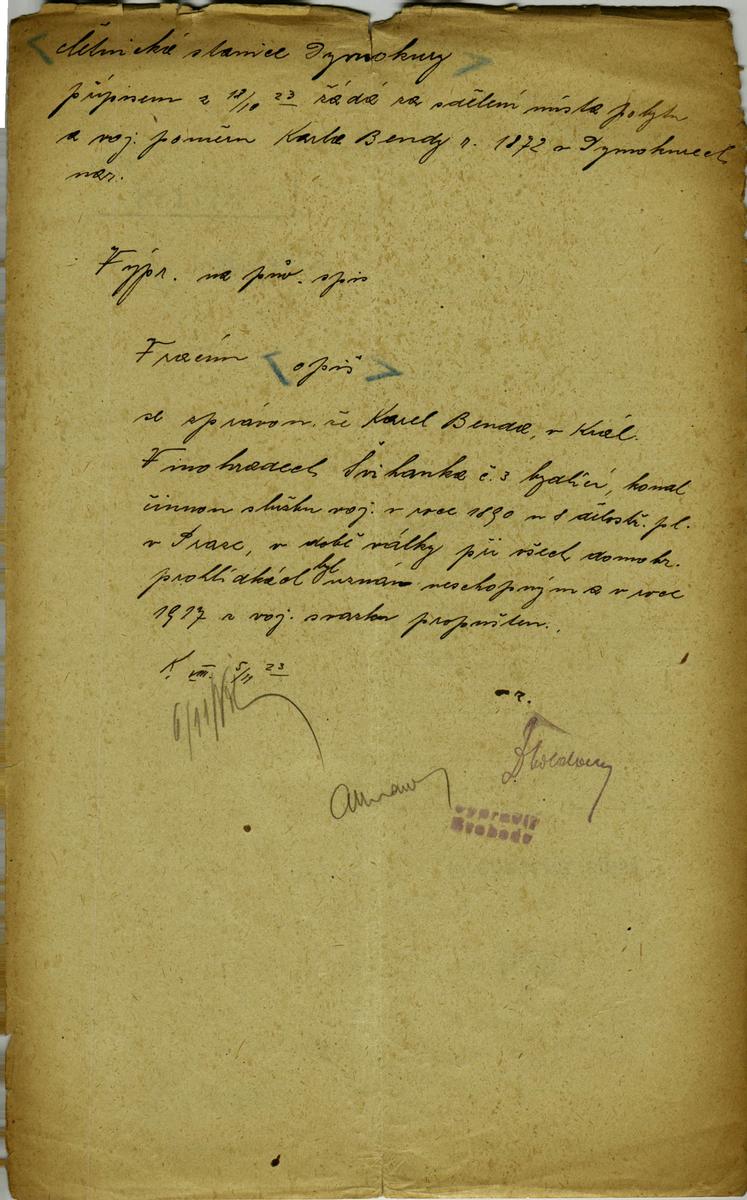 četnická stanice Dymokury
přípisem z 18/10 23 žádá za sdělení místa pobytu
a voj. poměru Karla Bendy r. 1872 v Dymokurech
nar.
Výpr. na pův. spis
Vracím spis
se zprávou, že Karel Benda, v Král.
Vinohradech Švihanka č. 3 bydlící, konal
činnou službu voj. v roce 1890 u 8 dělostř. pl.
v Praze, v době války při všech domobr.
prohlídkách byl uznán neschopným a v roce
1917 z voj. svazku propuštěn.
K. VIII. 5/11 23
6/11
vypravit
Svoboda